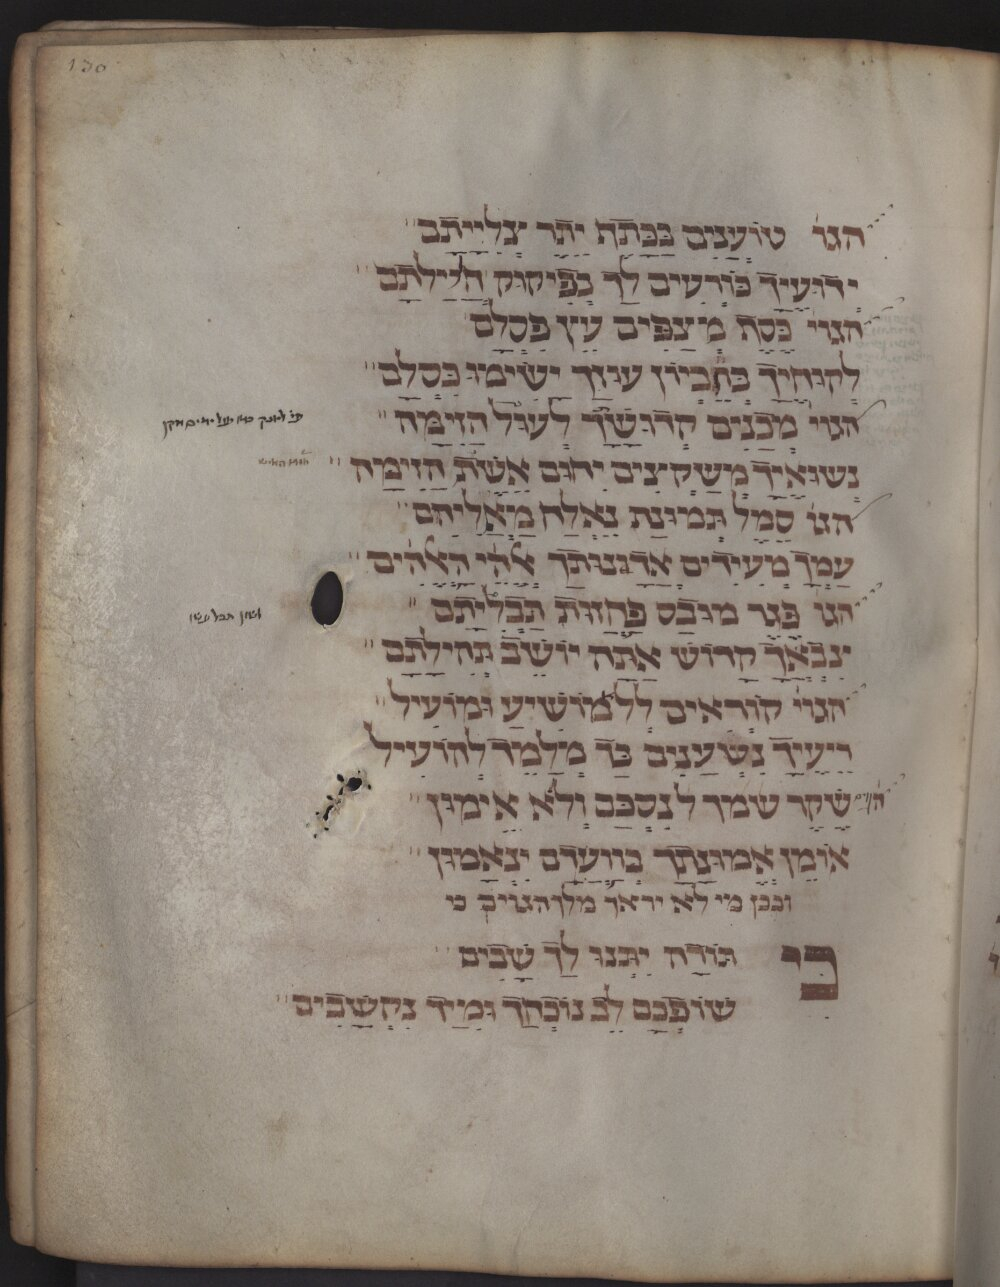 130
הגוי טוענים בכתף יתר צלייתב
ידועיך כורעים לך בפיקוק חלילתם
הגוי כסף מצפים עץ פסלם
לקוחיך בחביון עוזך ישימו כסלם
הגוי מכנים קדושתך לעול הזימה
נשואיך משקצים יחום אשת הזימה
הגוי סמל תמונת נאלח מאליהם
עמך מעידים אדנותך אלהי האלהים
הגוי פגר מובס פחזות תבליתם
צבאך קדוש אתה יושב תהילתם
הגוי קוראים ללא מושיע ומועיל
ריעיך נשענים בך מלמד להועיל
הגוים
שקר שמך לנסכם ולא אימון
אומן אמונתך בוועדם יצאמון
ובכן מי לא יראך מלך הגוים כי
כי תודה יתנו לך שבים
שופכם לב נוכחך ומיד נקשבים